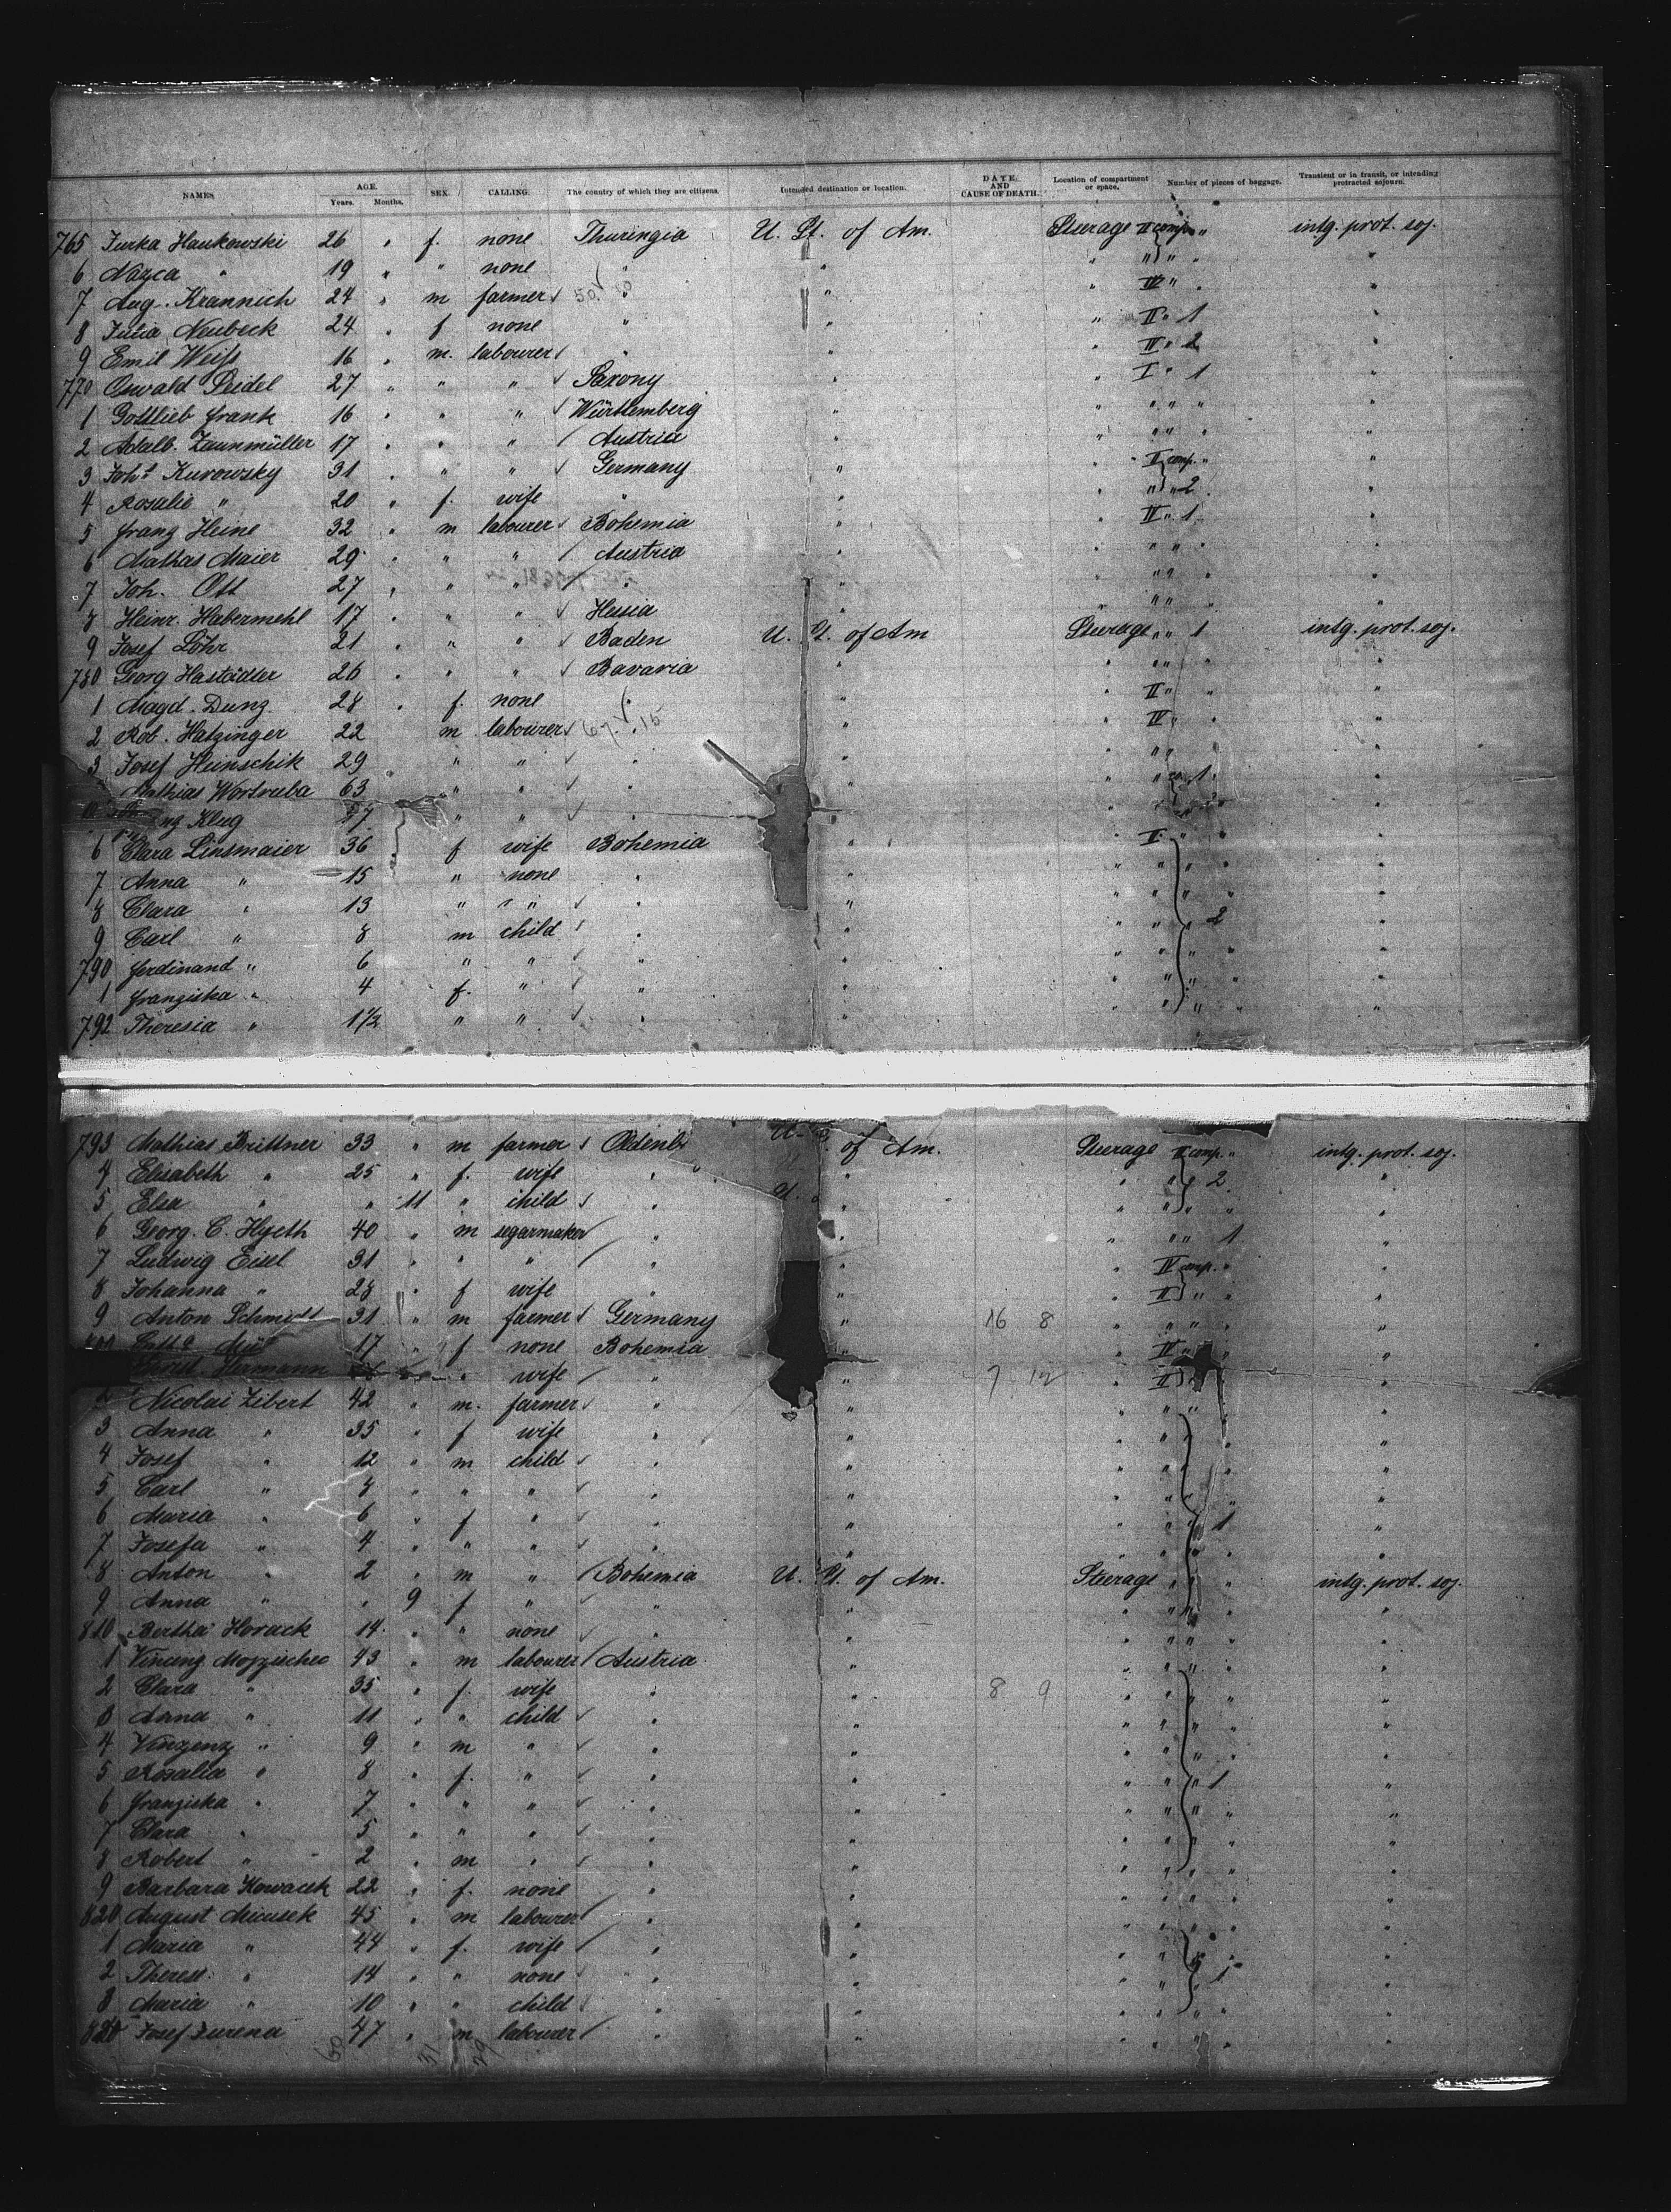 NAMES AGE. Years. Months. SEX. CALLING. The country of which they are citizens. Intended destination or location. DATE AND CAUSE OF DEATH. Location of compartment or space. Number of pieces of baggage. Transient or in transit, or intending protracted sojourn.
765 Jurka Haukowski 26 " f. none Thuringia U. St. of Am. Steerage II comp. " intg. prot. soj.
6 Nazca " 19 " " none " " " " " " "
7 Aug. Krannich 24 " m farmer " " " IV " " "
8 Julia Neubeck 24 " f none " " " II " 1 "
9 Emil Weiß 16 " m. labourer " " " IV " 2 "
770 Oswald Seidel 27 " " " Saxony " " I " 1 "
1 Gottlieb Frank 16 " " " Württemberg " " " " " "
2 Adalb. Zaunmüller 17 " " " Austria " " " " "
3 Joh. Kurowsky 31 " " " Germany " " II comp. " "
4 Rosalie " 20 " f. wife " " " " " 2 "
5 Franz Heine 32 " m labourer Bohemia " " IV " 1 "
6 Mathas Maier 29 " " " Austria " " " " " "
7 Joh. Ott 27 " " " " " " " " "
8 Heinr. Habermehl 17 " " " Hessia " " " " "
9 Josef Löhr 21 " " " Baden U. St. of Am Steerage " " 1 intg. prot. soj.
780 Georg Hastädter 26 " " " Bavaria " " " " " "
1 Magd. Dunz 28 " f. none " " " II " " "
2 Rob. Hatzinger 22 m labourer 67. 15 " " IV " " "
3 Josef Heinschik 29 " " " " " " " " "
Mathias Wortruba 63 " " " " " " 1 "
Klug 37 " " " " " "
6 Clara Linsmaier 36 f wife Bohemia " " II " " "
7 Anna " 15 " none " " " " " "
8 Clara " 13 " " " " " " " " "
9 Carl " 8 m child " " " " 2 "
790 Ferdinand " 6 " " " " " " " " "
1 Franziska " 4 f. " " " " " " "
792 Theresia " 1½ " " " " " " " " "
793 Mathias Brittner 33 " m farmer Oldenb of Am. Steerage II comp. " intg. prot. soj.
4 Elisabeth " 25 " f. wife " " " " 2 "
5 Elsa " " 11 " child " U. " " " " " "
6 Georg. C. Hyeth 40 " m segarmaker " " " " " 1 "
7 Ludwig Eisel 31 " " " " " " IV comp. " "
8 Johanna " 28 " f wife " " " II " " "
9 Anton Schmidt 31 " m farmer Germany " 16 8 " " " " "
17 " f none Bohemia " " IV " " "
Hermann " wife " " 7 12 " II " "
2 Nicolai Zibert 42 " m. farmer " " " " " "
3 Anna " 35 " f wife " " " " " " "
4 Josef " 12 " m child " " " " " " "
5 Carl " 8 " " " " " " " " " "
6 Maria " 6 " f " " " " " " 1 "
7 Josefa " 4 " " " " " " " " " "
8 Anton " 2 " m " Bohemia U. St. of Am. Steerage " " " intg. prot. soj.
9 Anna " " 9 f " " " " " " " "
810 Bertha Horack 14 " " none " " " " " " "
1 Vincenz Mozzischeo 43 " m labourer Austria " " " " " "
2 Clara " 35 " f. wife " " 8 9 " " " " "
3 Anna " 11 " " child " " " " " " "
4 Vinzenz " 9 " m " " " " " " " "
5 Rosalia " 8 " f. " " " " " " 1 "
6 Franziska " 7 " " " " " " " " " "
7 Clara " 5 " " " " " " " " " "
8 Robert " 2 " m " " " " " " " "
9 Barbara Kowacek 22 " f. none " " " " " " "
820 August Micusek 45 " m labourer " " " " " " "
1 Maria " 44 " f. wife " " " " " " "
2 Therese " 14 " " none " " " " " 1 "
3 Maria " 10 " " child " " " " " " "
Josef Zurena 47 " m labourer " " " " " "
60 31 29